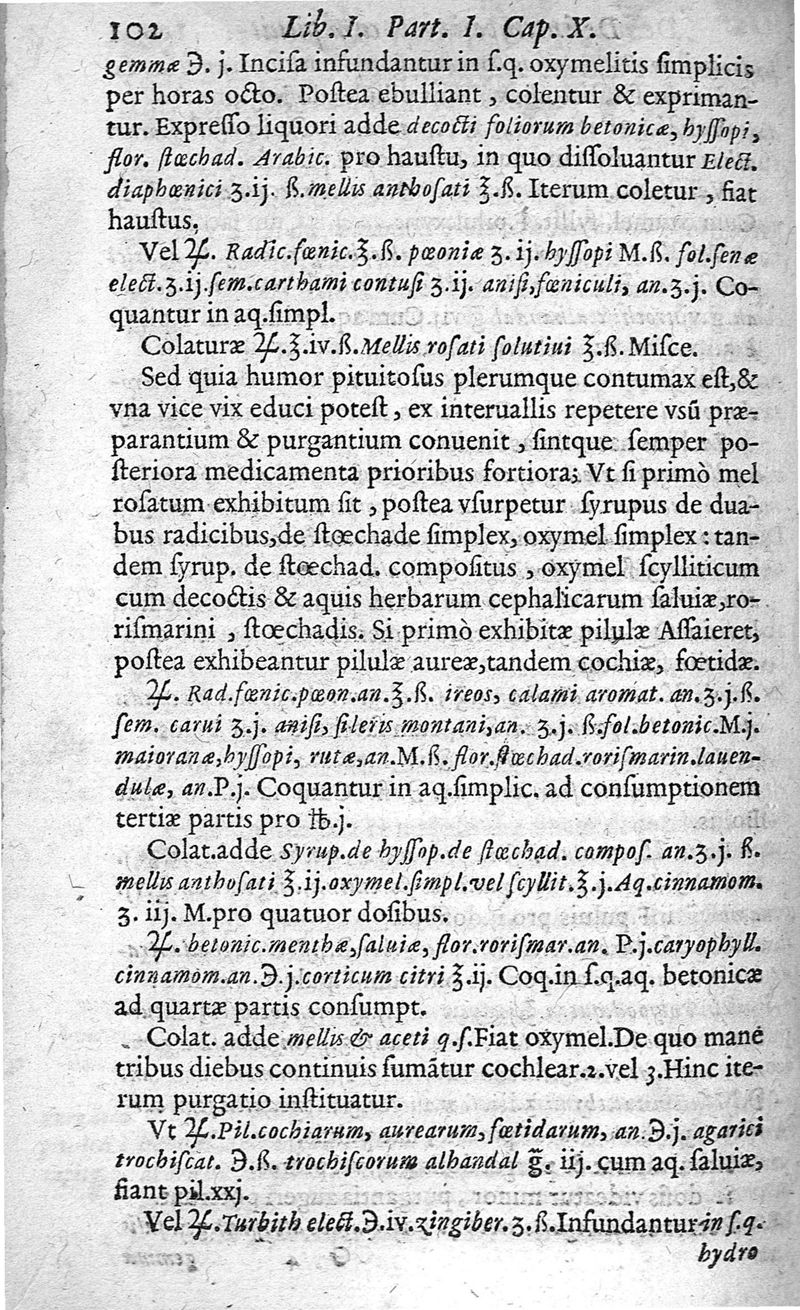 102 Lib. I. Part. I. Cap. X.
gemmæ ℈. j. Inciſa infundantur in ſ.q. oxymelitis ſimplicis
per horas octo. Poſtea ebulliant, colentur & expriman-
tur. Expreſſo liquori adde decocti foliorum betonicæ, hyſſopi,
flor. ſtœchad. Arabic. pro hauſtu, in quo diſſoluantur Elect.
diaphœnici ʒ.ij. ß. mellis anthoſati ℥.ß. Iterum coletur, fiat
hauſtus.
Vel ♃. Radic.fœnic.℥.ß. pœoniæ ʒ. ij. hyſſopi M.ß. fol.ſenæ
elect.ʒ.ij.ſem.carthami contuſi ʒ.ij. aniſi,fœniculi, an.ʒ.j. Co-
quantur in aq.ſimpl.
Colaturæ ♃.℥.iv.ß.Mellis roſati ſolutiui ℥.ß. Miſce.
Sed quia humor pituitoſus plerumque contumax eſt,&
vna vice vix educi poteſt, ex interuallis repetere vsũ præ-
parantium & purgantium conuenit, ſintque ſemper po-
ſteriora medicamenta prioribus fortiora; Vt ſi primò mel
roſatum exhibitum ſit, poſtea vſurpetur ſyrupus de dua-
bus radicibus,de ſtœchade ſimplex, oxymel ſimplex : tan-
dem ſyrup. de ſtœchad. compoſitus, oxymel ſcylliticum
cum decoctis & aquis herbarum cephalicarum ſaluiæ,ro-
riſmarini, ſtœchadis. Si primò exhibitæ pilulæ Aſſaieret,
poſtea exhibeantur pilulæ aureæ,tandem cochiæ, fœtidæ.
♃. Rad.fœnic.pœon.an.℥.ß. ireos, calami aromat. an.ʒ.j.ß.
ſem. carui ʒ.j. aniſi, ſileris montani,an. ʒ.j. ß.fol.betonic.M.j.
maioranæ,hyſſopi, rutæ,an.M.ß. flor.ſtœchad.roriſmarin.lauen-
dulæ, an.P.j. Coquantur in aq.ſimplic. ad conſumptionem
tertiæ partis pro ℔.j.
Colat.adde Syrup.de hyſſop.de ſtœchad. compoſ. an.ʒ.j. ß.
mellis anthoſati ℥.ij.oxymel.ſimpl.vel ſcyllit.℥.j.Aq.cinnamom.
ʒ. iij. M.pro quatuor doſibus.
♃. betonic.menthæ,ſaluiæ, flor.roriſmar.an. P.j.caryophyll.
cinnamom.an.℈.j.corticum citri ℥.ij. Coq.in ſ.q.aq. betonicæ
ad quartæ partis conſumpt.
Colat. adde mellis & aceti q.ſ.Fiat oxymel.De quo mane
tribus diebus continuis ſumãtur cochlear.2.vel 3.Hinc ite-
rum purgatio inſtituatur.
Vt ♃.Pil.cochiarum, aurearum, fœtidarum, an.℈.j. agarici
trochiſcat. ℈.ß. trochiſcorum alhandal g̃. iij. cum aq. ſaluiæ,
fiant pil.xxj.
Vel ♃.Turbith elect.℈.iv.zingiber.ʒ.ß.Infundantur in ſ.q.
hydro